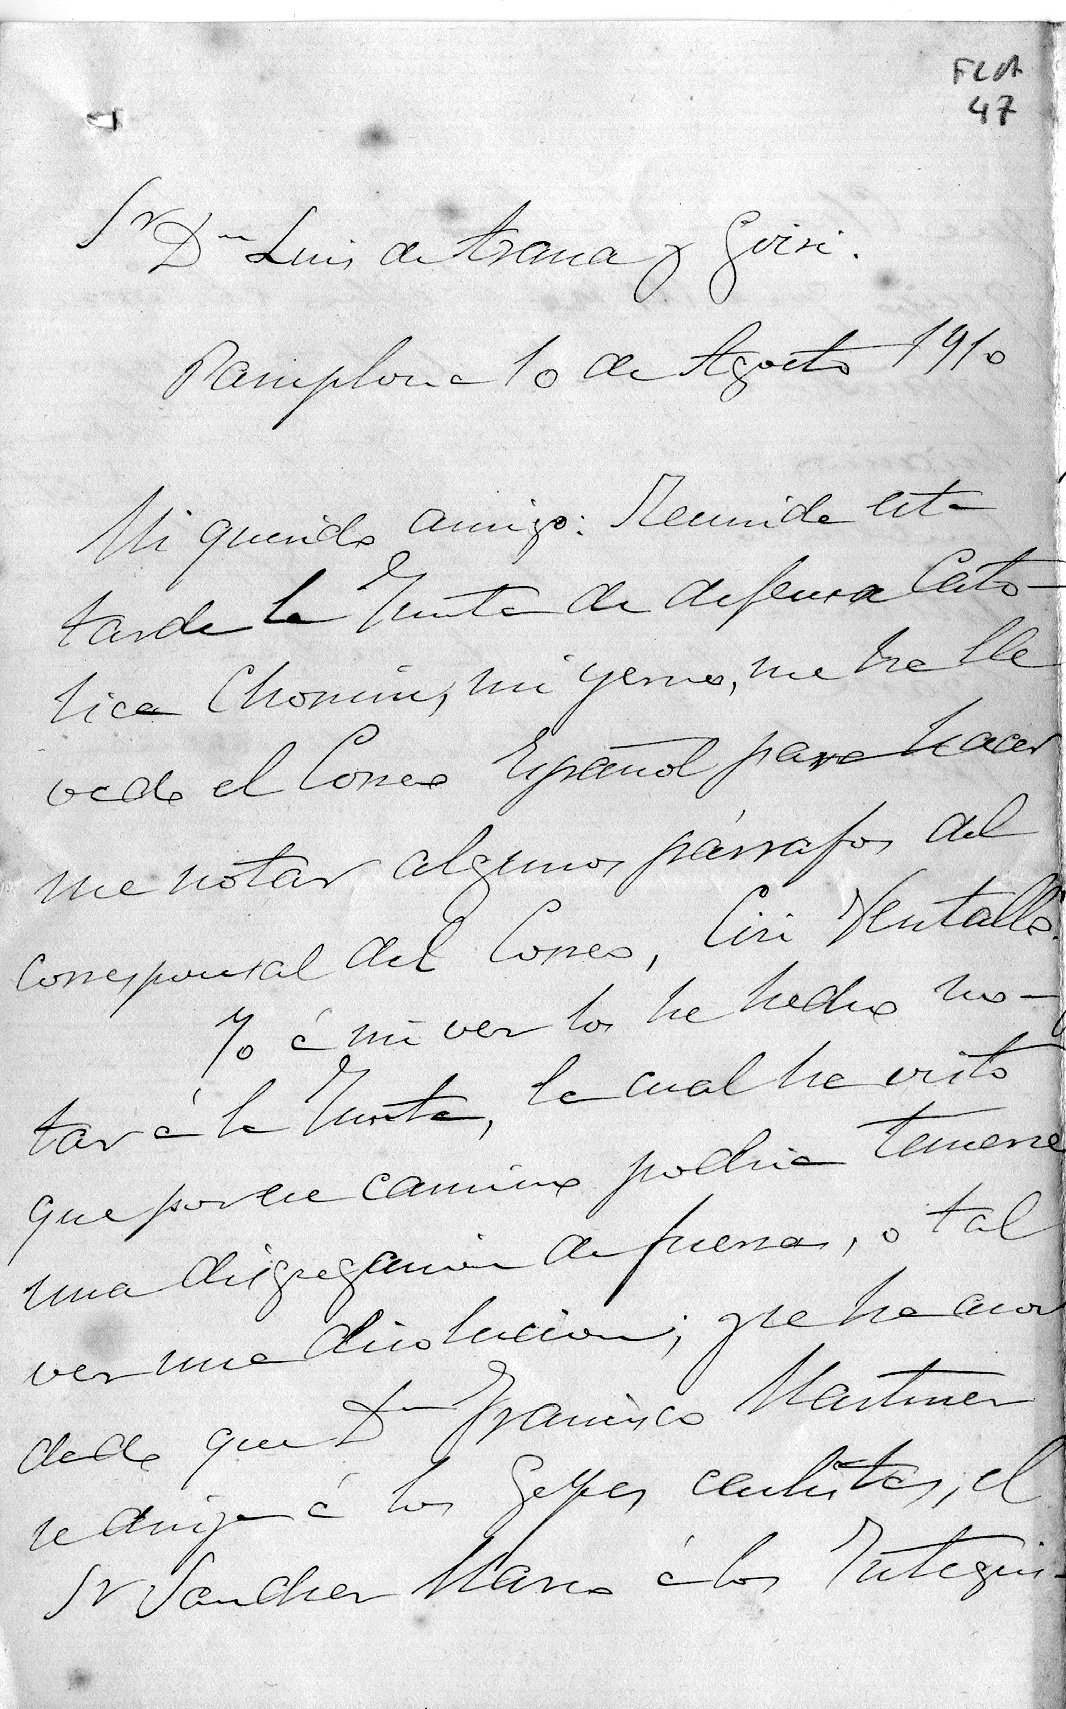 FLA
47
Sr Dn Luis de Arana y Goiri.
Pamplona 10 de Agosto 1910
Mi querido amigo: Reunida esta
tarde la Junta de defensa Cató-
lica Chomin, mi yerno, me ha lle
vado el Correo Español para hacer
me notar algunos párrafos del
corresponsal del Correo, Ciri Ventalló.
Yo á mi vez los he hecho no-
tar á la Junta, la cual ha visto
que por ese camino podria temerse
una disgregacion de fuerzas, o tal
vez una disolucion; y se ha acor
dado que Dn Francisco Martinez
se dirija á los Gefes carlistas, el
Sr Sanchez Marco á los Integris-